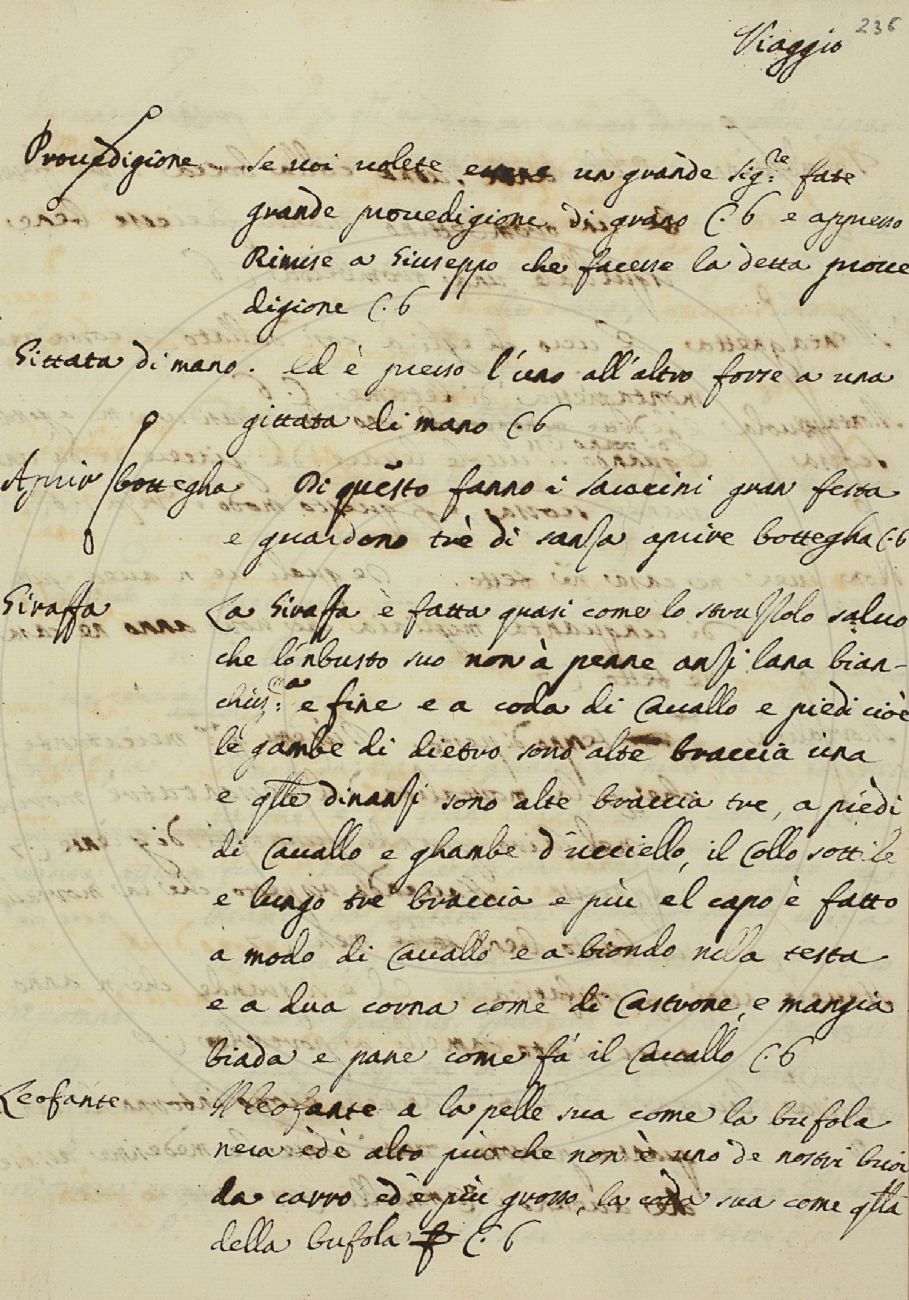 236
Viaggio
Provedigione Se uoi uolete essere un grande Sig.re fate
grande prouedigione di grano C. 6 e appresso
Rimise a Giuseppo che facesse la detta proue
digione C. 6
Gittata di mano. Ed è presso l'uno all'altro forse a una
gittata di mano C. 6
Aprir bottegha Di questo fanno i Saracini gran festa
e guardono trè di sanza aprire bottegha C. 6
Giraffa La Giraffa è fatta quasi come lo struzzolo saluo
che lo 'nbusto suo non à penne anzi lana bian-
chiss.ma e fine e a coda di Cauallo e piedi cioè
le gambe di dietro sono alte braccia una
e qlle dinanzi sono alte braccia tre, a piedi
di Cauallo e ghambe d'ucciello, il Collo sottile
e lungo tre braccia e più el capo è fatto
a modo di Cauallo e a biondo nella testa
e a dua corna come di Castrone, e mangia
biada e pane come fà il Cauallo C. 6
Leofante Il leofante a la pelle sua come la bufola
nera èdè alto più che non è uno de nostri buoi
da carro èd'è più grosso, la coda sua come qlla
della bufola C. 6